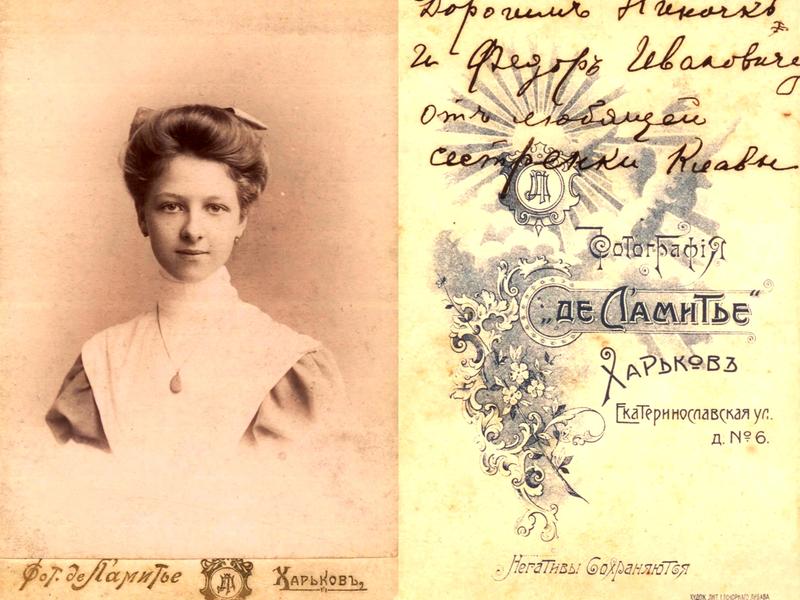 Фот. де Ламитье
ДЛ
Харьковъ,
Дорогимъ Ниночкѣ
и Федоръ Ивановичу
отъ любящей
сестренки Клавы
ДЛ
Фотографія
„де Ламитье“
Харьковъ
Екатеринославская ул.
д. № 6.
Негативы Сохраняются